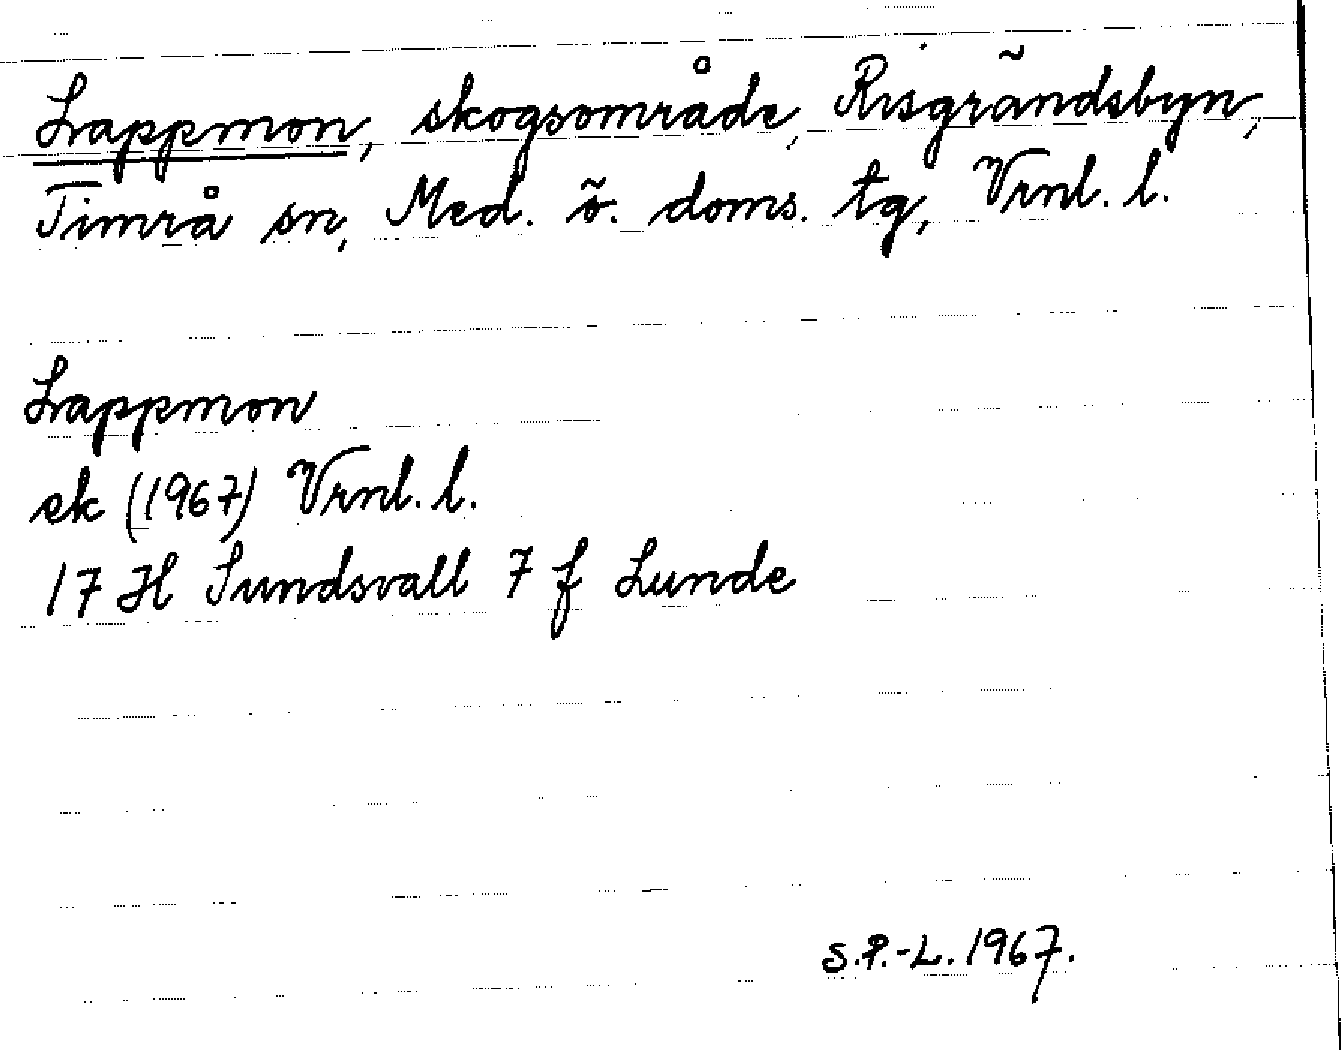 Lappmon, skogsområde, Risgrändsbyn,
Timrå sn, Med. ö. doms. tg, Vrnl. l.
Lappmon
ek (1967) Vrnl. l.
17 H Sundsvall 7 f Lunde
S.P.-L. 1967.